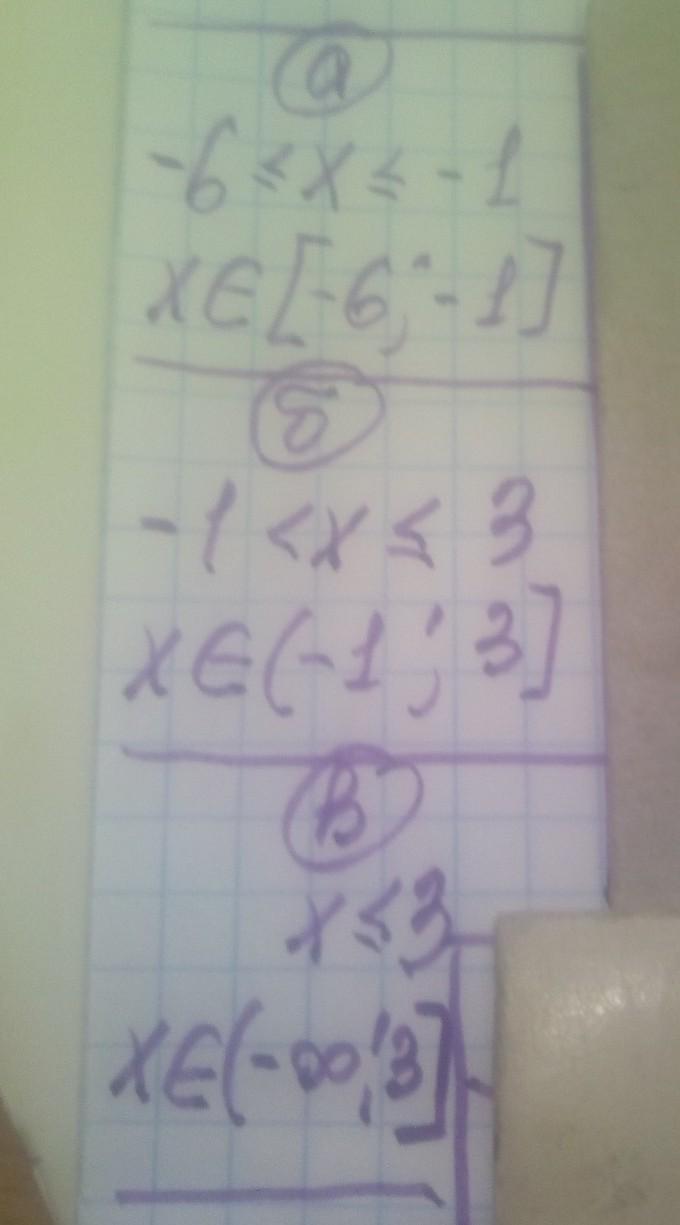 а
-6 ≤ x ≤ -1
x∈[-6; -1]
б
-1 < x ≤ 3
x∈(-1; 3]
в
x ≤ 3
x∈(-∞; 3]